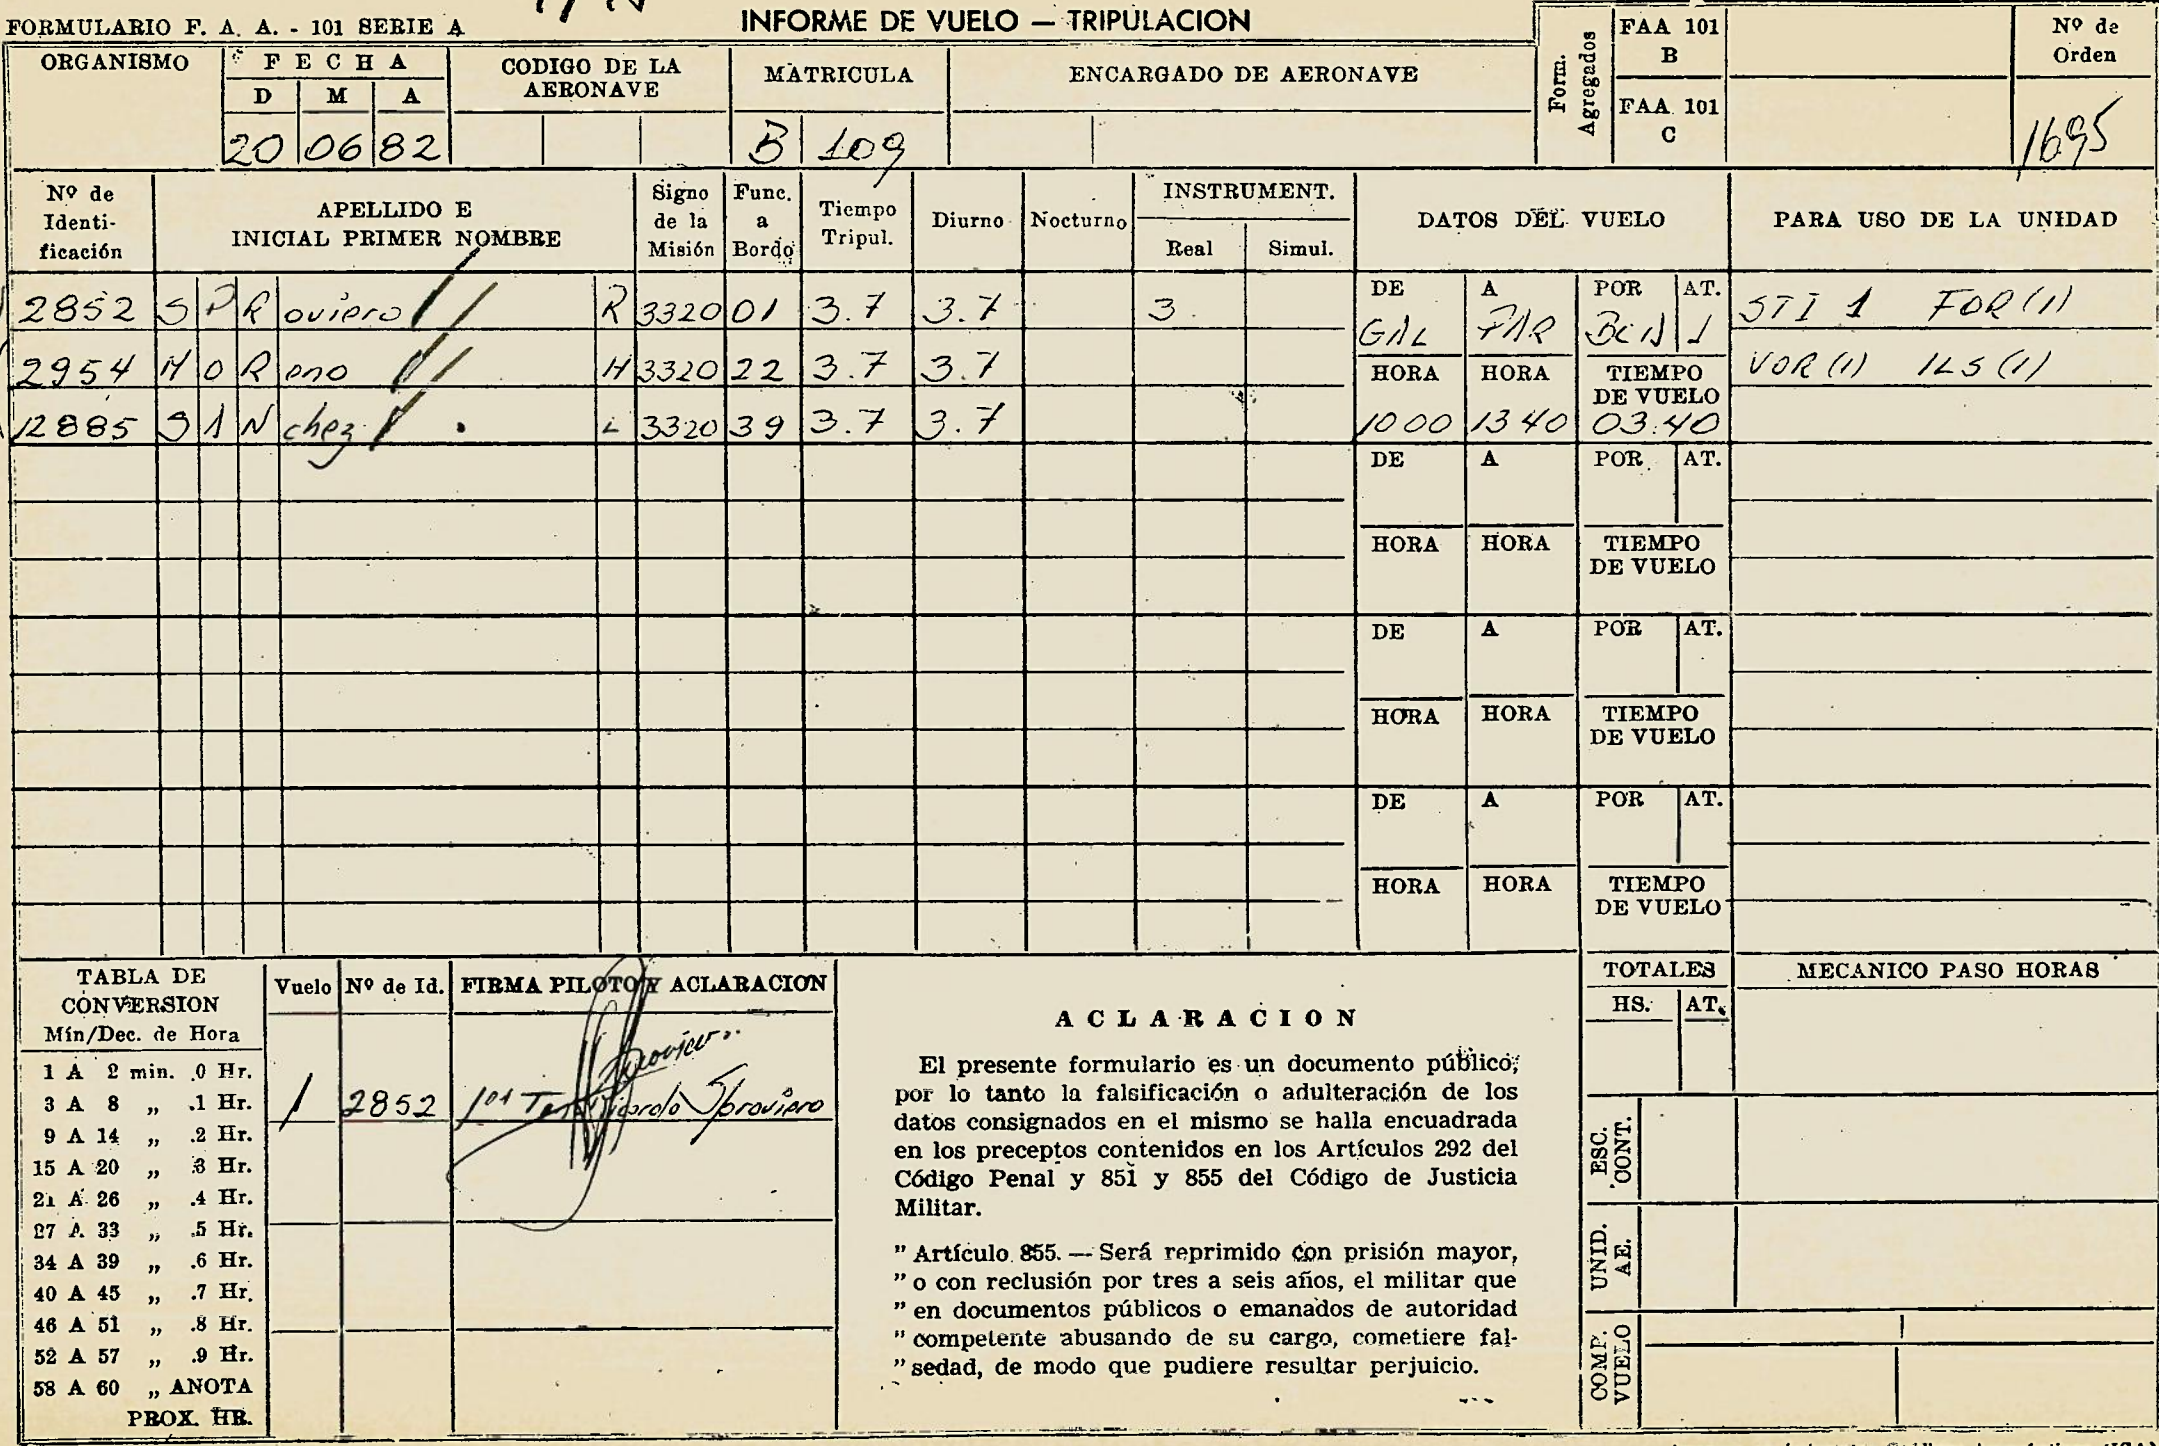 FORMULARIO F. A. A. - 101 SERIE A
INFORME DE VUELO — TRIPULACION
ORGANISMO
FECHA
D M A
20 06 82
CODIGO DE LA AERONAVE
MATRICULA
B 109
ENCARGADO DE AERONAVE
Form. Agregados
FAA 101 B
FAA 101 C
Nº de Orden
1695
Nº de Identificación
APELLIDO E INICIAL PRIMER NOMBRE
Signo de la Misión
Func. a Bordo
Tiempo Tripul.
Diurno
Nocturno
INSTRUMENT.
Real Simul.
DATOS DEL VUELO
PARA USO DE LA UNIDAD
2852 S P R oviero R 3320 01 3.7 3.7 3.
2954 M O R eno H 3320 22 3.7 3.7
12885 S A N chez L 3320 39 3.7 3.7
DE A POR AT.
GAL PAR 1
HORA HORA TIEMPO DE VUELO
10 00 13 40 03:40
STI 1 FOR (1)
VOR (1) ILS (1)
DE A POR AT.
HORA HORA TIEMPO DE VUELO
DE A POR AT.
HORA HORA TIEMPO DE VUELO
DE A POR AT.
HORA HORA TIEMPO DE VUELO
TABLA DE CONVERSION
Mín/Dec. de Hora
1 A 2 min. .0 Hr.
3 A 8 „ .1 Hr.
9 A 14 „ .2 Hr.
15 A 20 „ .3 Hr.
21 A 26 „ .4 Hr.
27 A 33 „ .5 Hr.
34 A 39 „ .6 Hr.
40 A 45 „ .7 Hr.
46 A 51 „ .8 Hr.
52 A 57 „ .9 Hr.
58 A 60 „ ANOTA
PROX. HR.
Vuelo Nº de Id. FIRMA PILOTO Y ACLARACION
1 2852 Ricardo Sproviero
ACLARACION
El presente formulario es un documento público;
por lo tanto la falsificación o adulteración de los
datos consignados en el mismo se halla encuadrada
en los preceptos contenidos en los Artículos 292 del
Código Penal y 851 y 855 del Código de Justicia
Militar.
" Artículo 855. — Será reprimido con prisión mayor,
" o con reclusión por tres a seis años, el militar que
" en documentos públicos o emanados de autoridad
" competente abusando de su cargo, cometiere fal-
" sedad, de modo que pudiere resultar perjuicio.
TOTALES
HS. AT.
MECANICO PASO HORAS
ESC. CONT.
UNID. AE.
COMP. VUELO